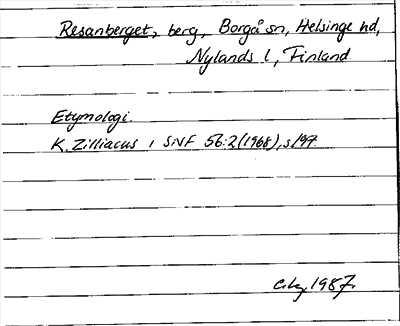 Resanberget, berg, Borgå sn, Helsinge hd,
Nylands l, Finland
Etymologi.
K. Zilliacus i SNF 56:2 (1968), s. 197.
1987.